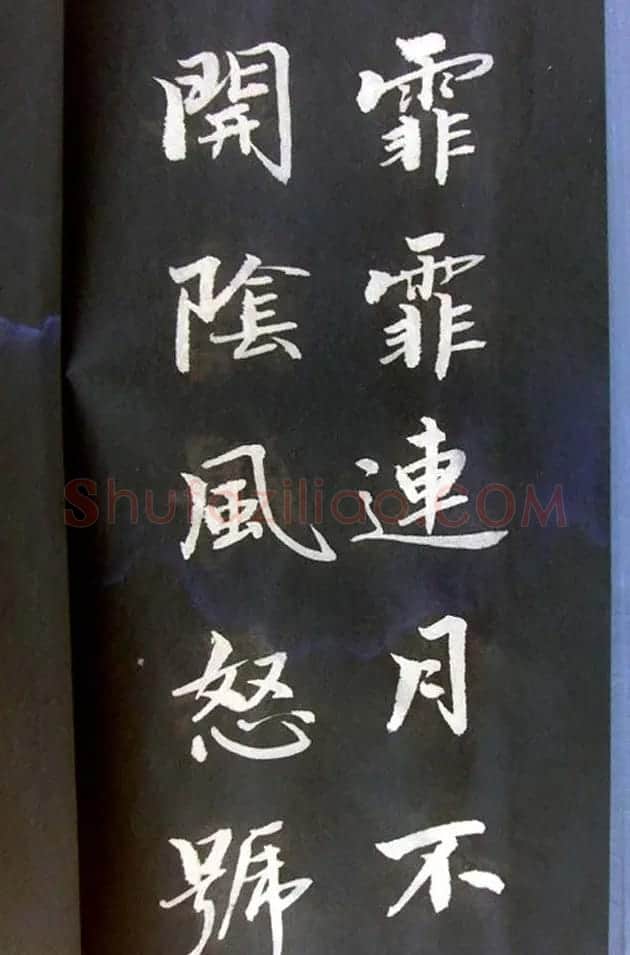 霏霏連月不
開陰風怒號
Shufaziliao.COM